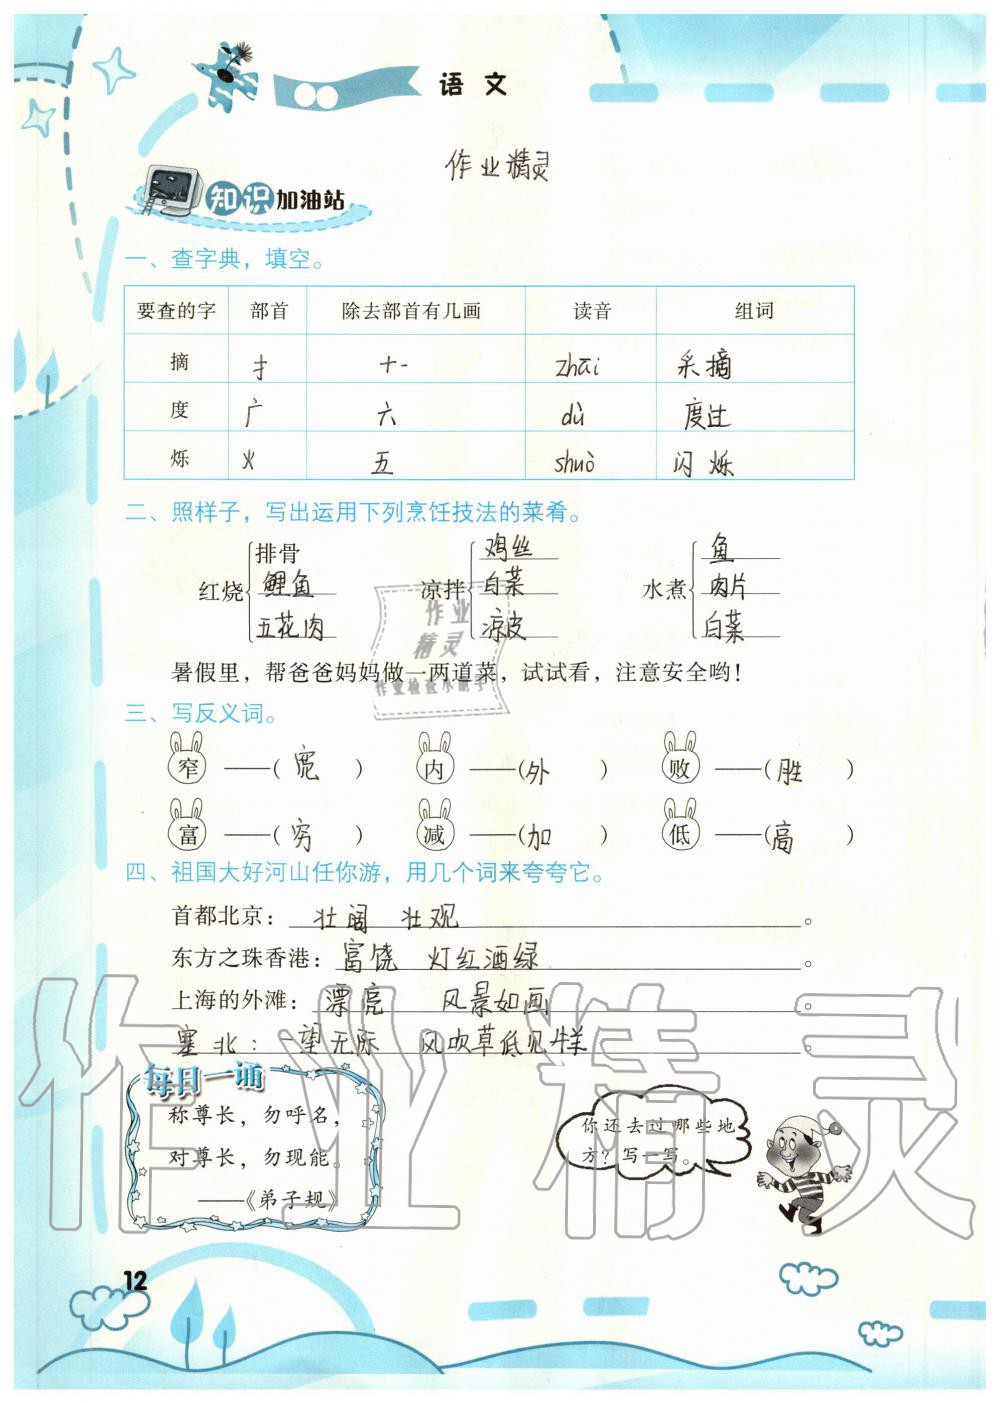 语 文
作业精灵
知识加油站
一、查字典，填空。
要查的字 部首 除去部首有几画 读音 组词
摘 扌 十一 zhāi 采摘
度 广 六 dù 度过
烁 火 五 shuò 闪烁
二、照样子，写出运用下列烹饪技法的菜肴。
红烧 排骨 鲤鱼 五花肉
凉拌 鸡丝 白菜 凉皮
水煮 鱼 肉片 白菜
作业
精灵
作业检查小助手
暑假里，帮爸爸妈妈做一两道菜，试试看，注意安全哟！
三、写反义词。
窄 ——( 宽 ) 内 ——(外 ) 败 ——( 胜 )
富 ——( 穷 ) 减 ——( 加 ) 低 ——( 高 )
四、祖国大好河山任你游，用几个词来夸夸它。
首都北京： 壮阔 壮观 。
东方之珠香港： 富饶 灯红酒绿 。
上海的外滩： 漂亮 风景如画 。
塞北： 一望无际 风吹草低见牛羊 。
作业精灵
每日一诵
称尊长，勿呼名，
对尊长，勿现能。
——《弟子规》
你还去过哪些地
方？写一写。
12